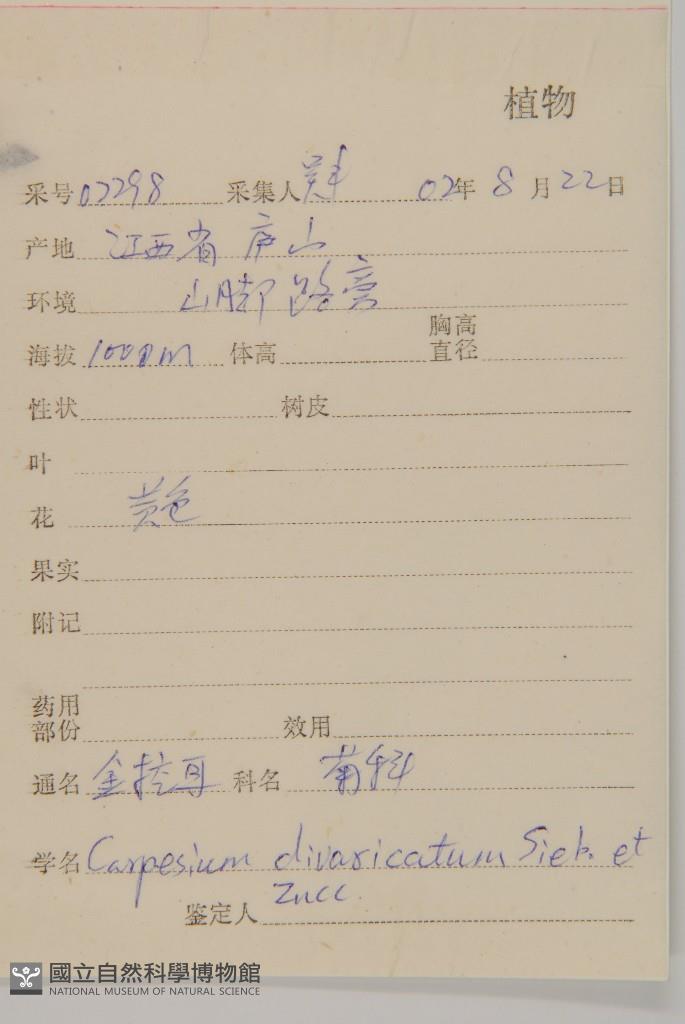 植物
采号 02298 采集人 02年 8月22日
产地 江西省庐山
环境 山脚路旁
海拔 1000m 体高 胸高直径
性状 树皮
叶
花 黄色
果实
附记
药用部份 效用
通名 金挖耳 科名 菊科
学名 Carpesium divaricatum Sieb. et
Zucc.
鉴定人
國立自然科學博物館
NATIONAL MUSEUM OF NATURAL SCIENCE